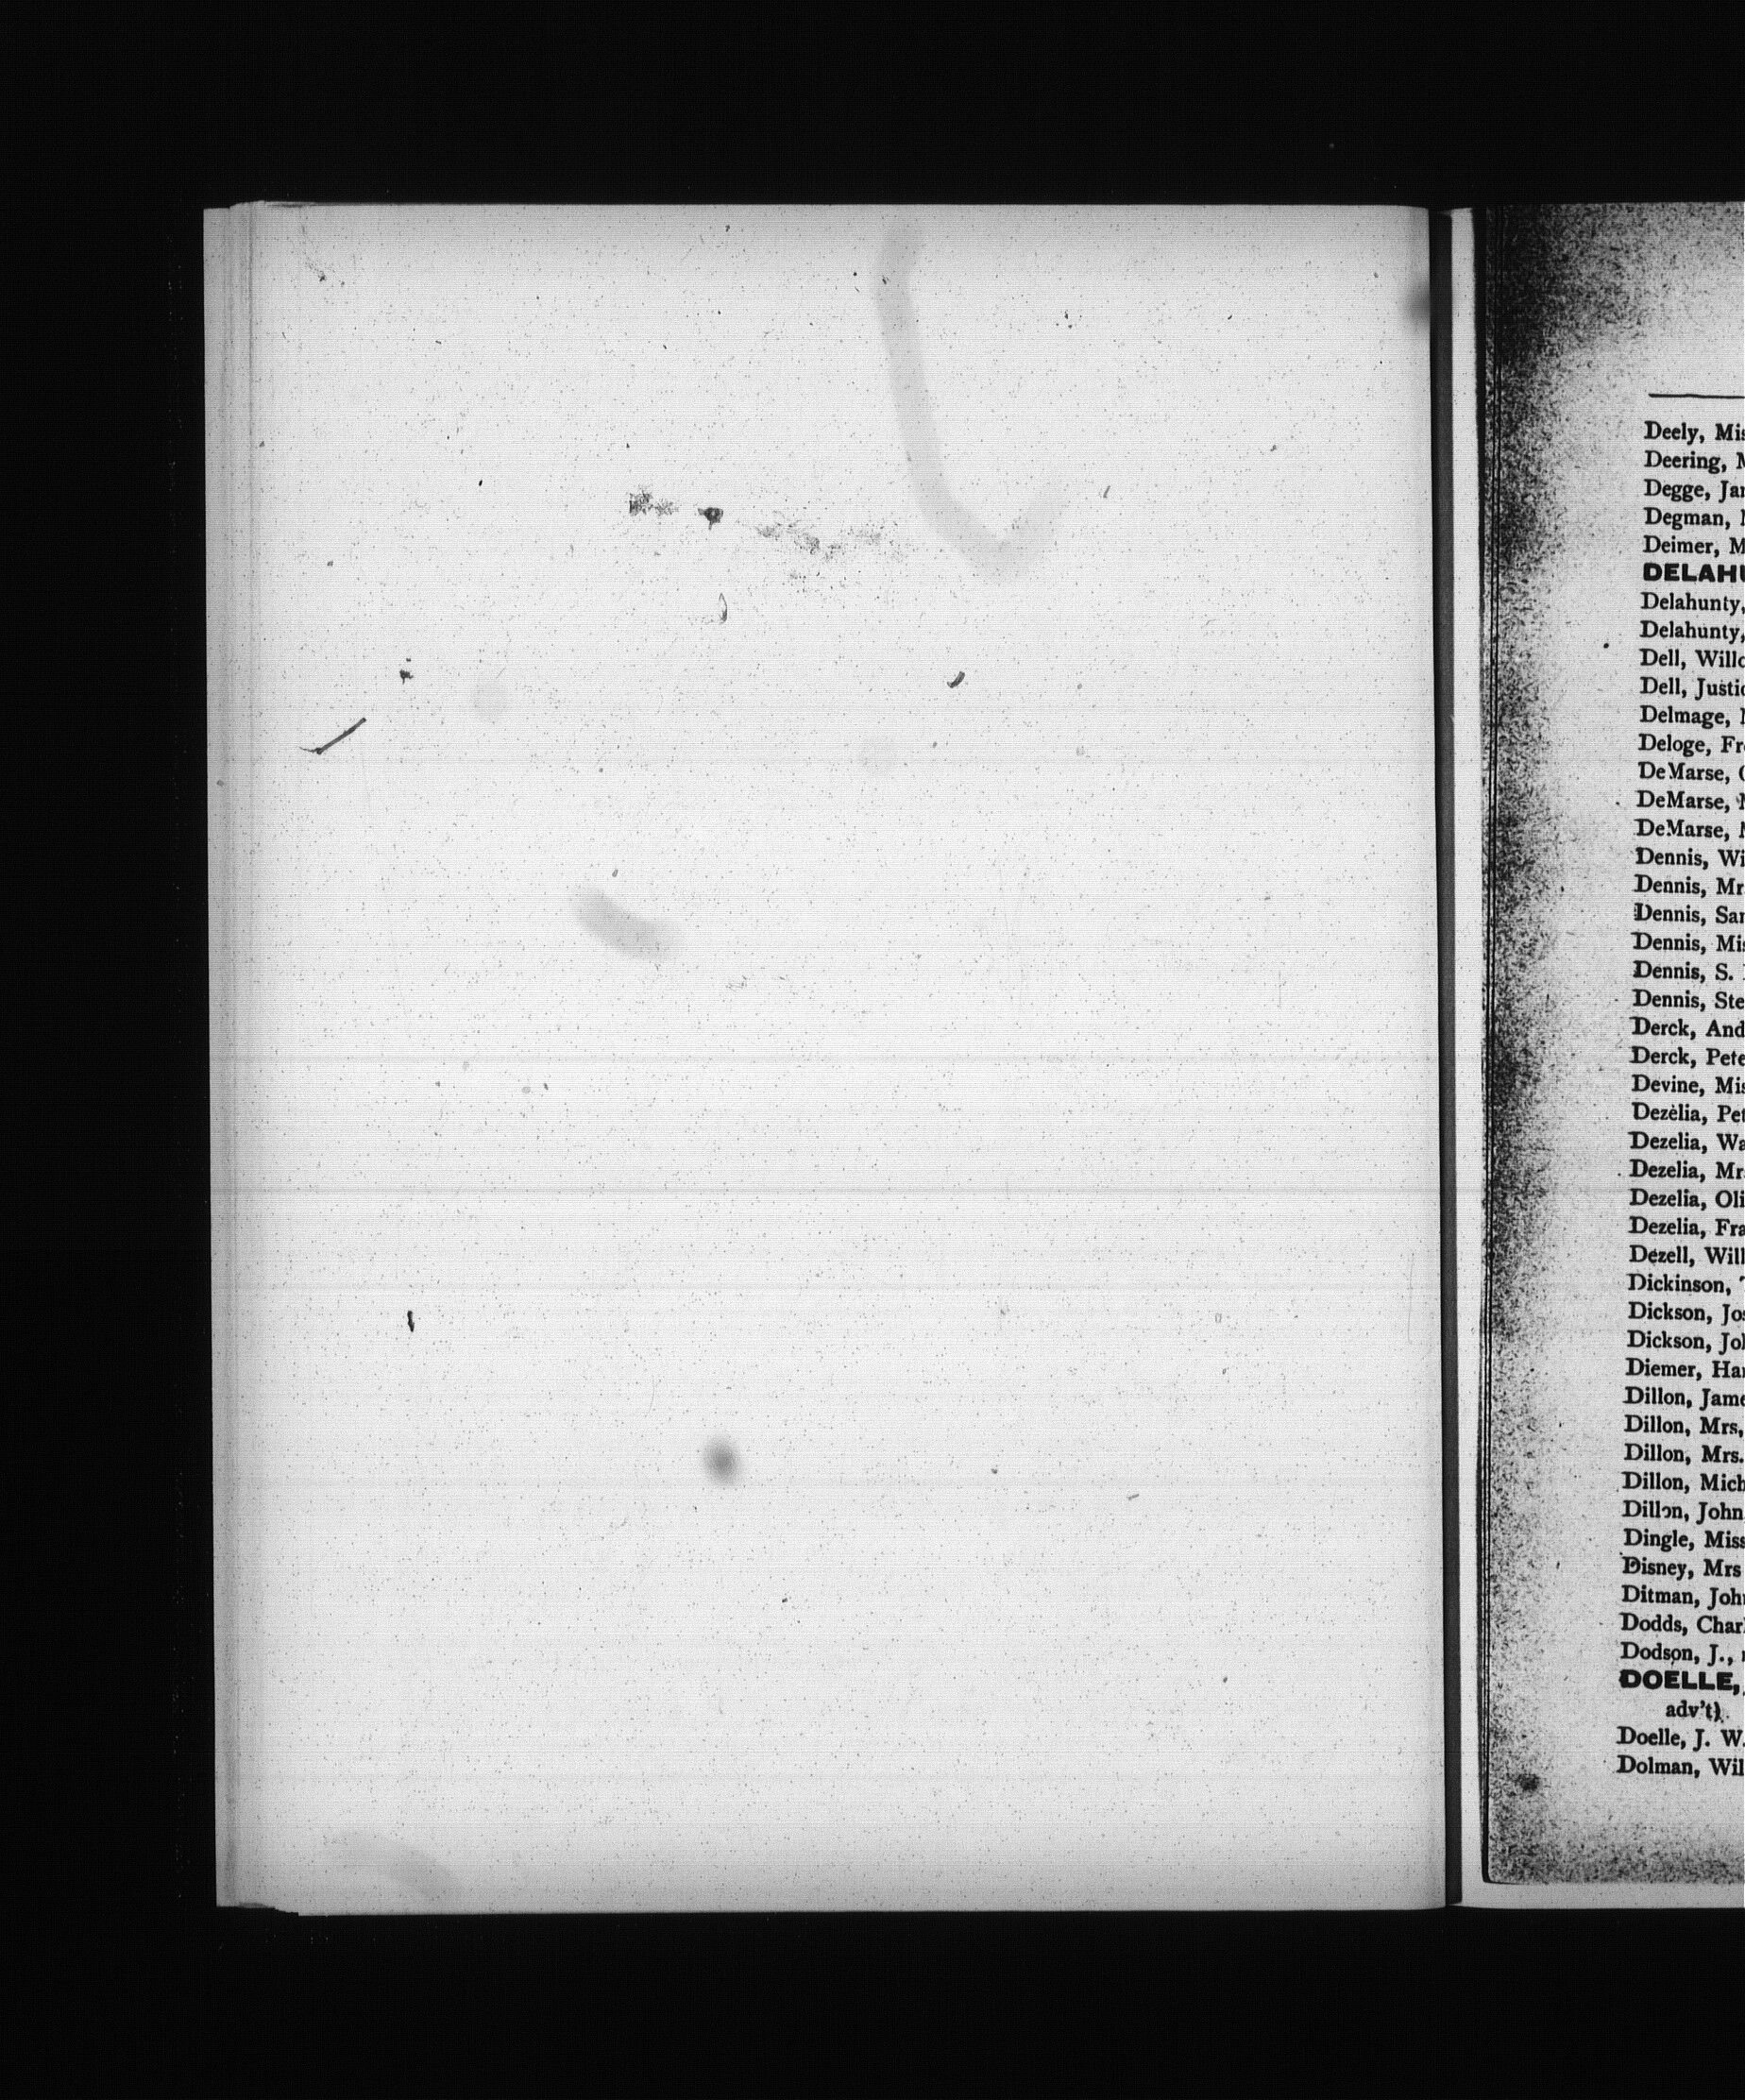 Deely, Mis
Deering, M
Degge, Jar
Degman, M
Deimer, M
DELAHU
Delahunty,
Delahunty,
Dell, Willo
Dell, Justic
Delmage, M
Deloge, Fr
DeMarse, C
DeMarse, M
DeMarse, M
Dennis, Wi
Dennis, Mr
Dennis, Sar
Dennis, Mis
Dennis, S.
Dennis, Ste
Derck, And
Derck, Pete
Devine, Mis
Dezelia, Pet
Dezelia, Wa
Dezelia, Mr
Dezelia, Oli
Dezelia, Fra
Dezell, Will
Dickinson,
Dickson, Jos
Dickson, Joh
Diemer, Har
Dillon, Jame
Dillon, Mrs,
Dillon, Mrs.
Dillon, Mich
Dillon, John
Dingle, Miss
Disney, Mrs
Ditman, John
Dodds, Charl
Dodson, J.,
DOELLE,
adv't)
Doelle, J. W.
Dolman, Wil